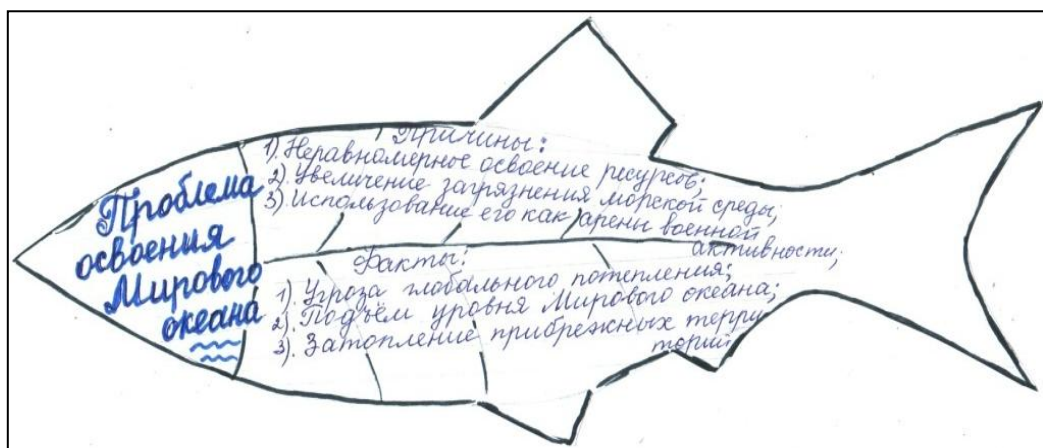 Проблема
освоения
Мирового
океана
Причины:
1). Неравномерное освоение ресурсов;
2). Увеличение загрязнения морской среды;
3). Использование его как арены военной
активности;
Факты:
1). Угроза глобального потепления;
2). Подъём уровня Мирового океана;
3). Затопление прибрежных терри
торий